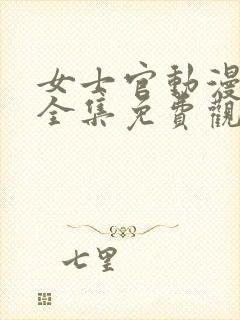 女士官動漫
全集免費觀
七里